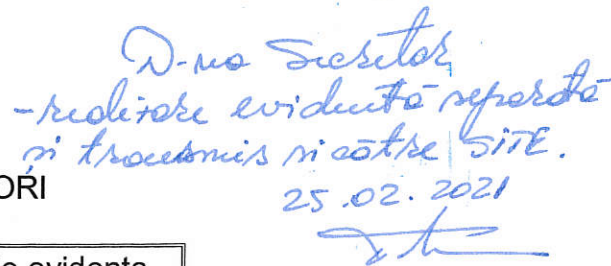 D-na Secretar
- realizare evidență separată
și transmis și către SITE.
ORI
25.02.2021
e evidenta